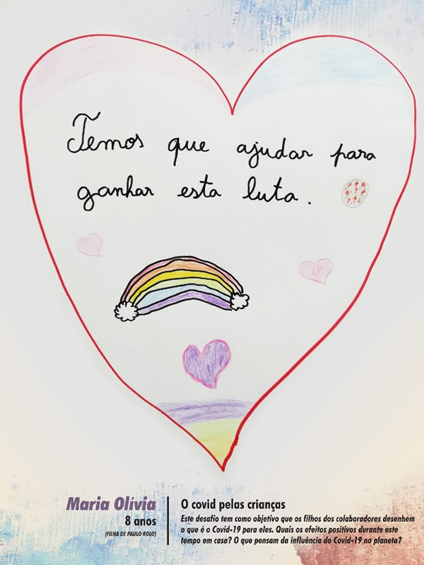 Temos que ajudar para
ganhar esta luta.
Maria Olívia
8 anos
(FILHA DE PAULO ROLO)
O covid pelas crianças
Este desafio tem como objetivo que os filhos dos colaboradores desenhem
o que é o Covid-19 para eles. Quais os efeitos positivos durante este
tempo em casa? O que pensam da influência do Covid-19 no planeta?